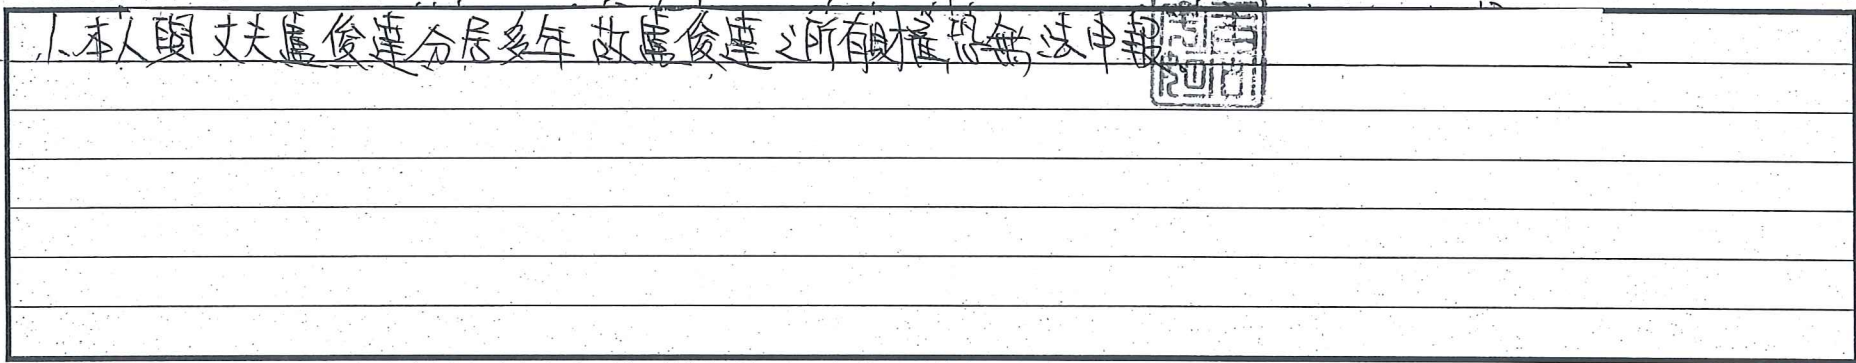 1.本人與丈夫盧俊達分居多年故盧俊達之所有財權恐無法申報